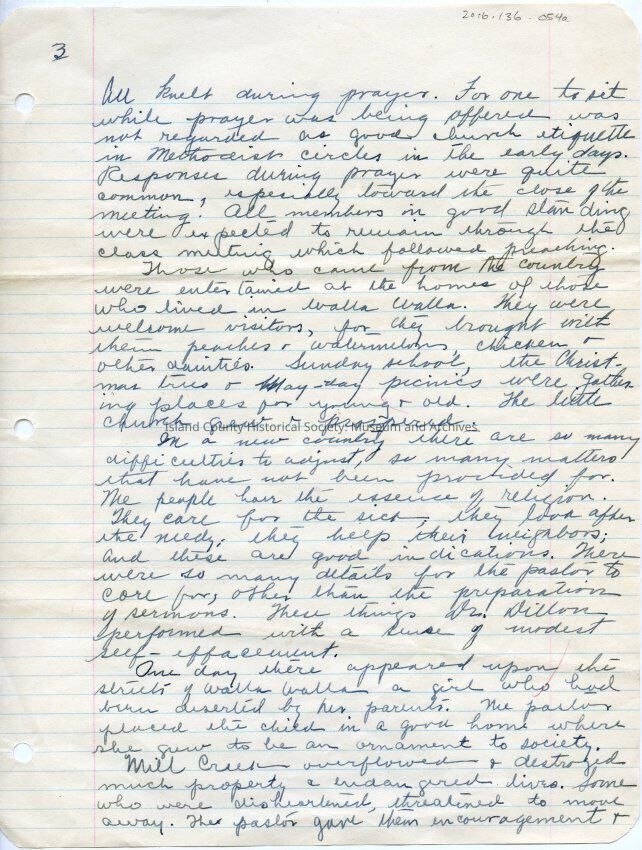 2016.136.054a
3
All knelt during prayer. For one to sit
while prayer was being offered was
not regarded as good church etiquette
in Methodist circles in the early days.
Responses during prayer were quite
common, especially toward the close of the
meeting. All members in good standing
were expected to remain through the
class meeting which followed preaching.
Those who came from the country
were entertained at the homes of those
who lived in Walla Walla. They were
welcome visitors, for they brought with
them peaches & watermelons, chicken &
other dainties. Sunday school, the Christ-
mas trees & May-day picnics were gather
ing places for young & old. The little
church grew & prospered.
Island County Historical Society: Museum and Archives
In a new country there are so many
difficulties to adjust, so many matters
that have not been provided for.
The people have the essence of religion.
They care for the sick, they look after
the needy, they help their neighbors;
and these are good indications. There
were so many details for the pastor to
care for, other than the preparation
of sermons. These things Dr. Dillon
performed with a sense of modest
self-effacement.
One day there appeared upon the
streets of Walla Walla a girl who had
been deserted by her parents. The pastor
placed the child in a good home where
she grew to be an ornament to society.
Mill Creek overflowed & destroyed
much property & endangered lives. Some
who were disheartened, threatened to move
away. The pastor gave them encouragement &